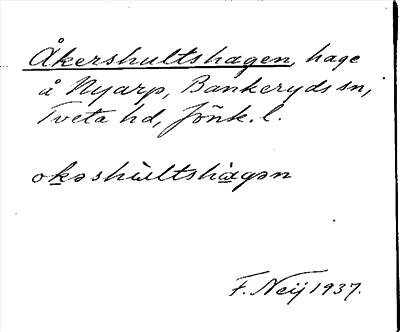 Åkershultshagen, hage
å Nyarp, Bankeryds sn,
Tveta hd, Jönk. l.
okəshùltshàgən
F. Neij 1937.